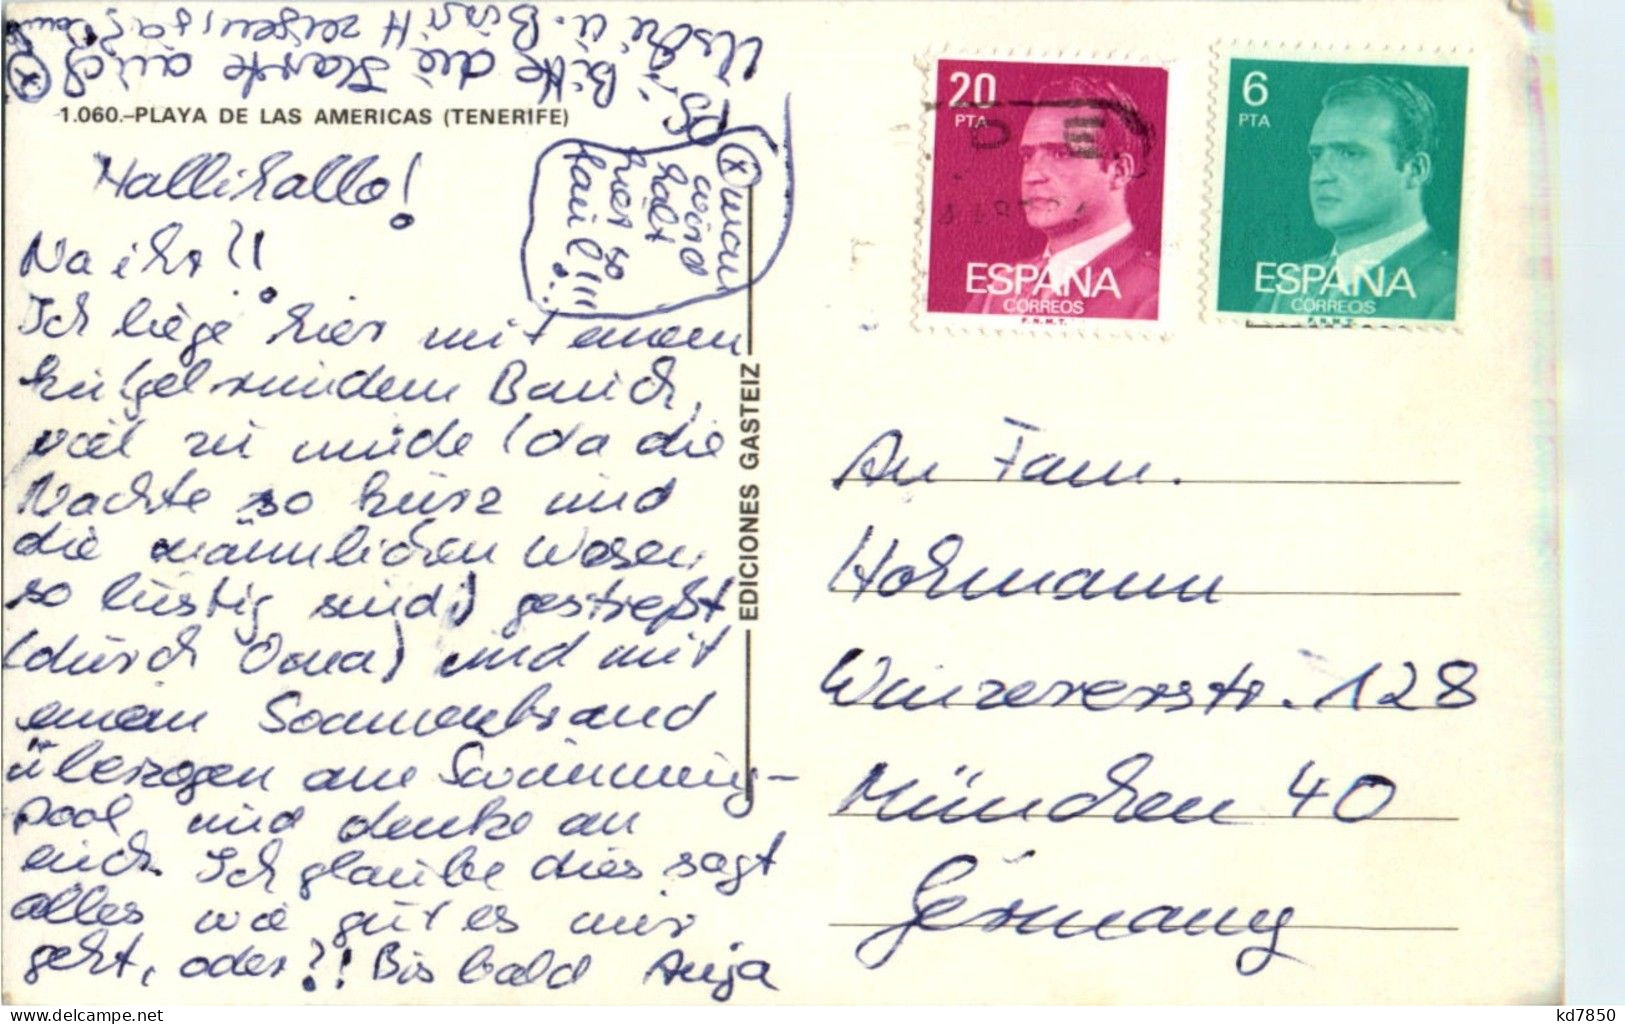 PS: Bitte die Karte auch
Uschi u. Birgit zeigen, ja?
1.060.-PLAYA DE LAS AMERICAS (TENERIFE)
Hallihallo!
Na ihr?!
Ich liege hier mit einem
kugelrunden Bauch,
viel zu müde (da die
Nächte so kurz und
die männlichen Wesen
so lustig sind) gestreßt
(durch Oma) und mit
einem Sonnenbrand
überzogen am Swimming-
pool und denke an
euch. Ich glaube dies sagt
alles wie gut es mir
geht, oder?! Bis bald Anja
(x) man
wird
halt
hier so
faul!!!
EDICIONES GASTEIZ
20
PTA
ESPAÑA
CORREOS
F.N.M.T.
6
PTA
ESPAÑA
CORREOS
F.N.M.T.
An Fam.
Hohmann
Winzererstr. 128
München 40
Germany
kd7850